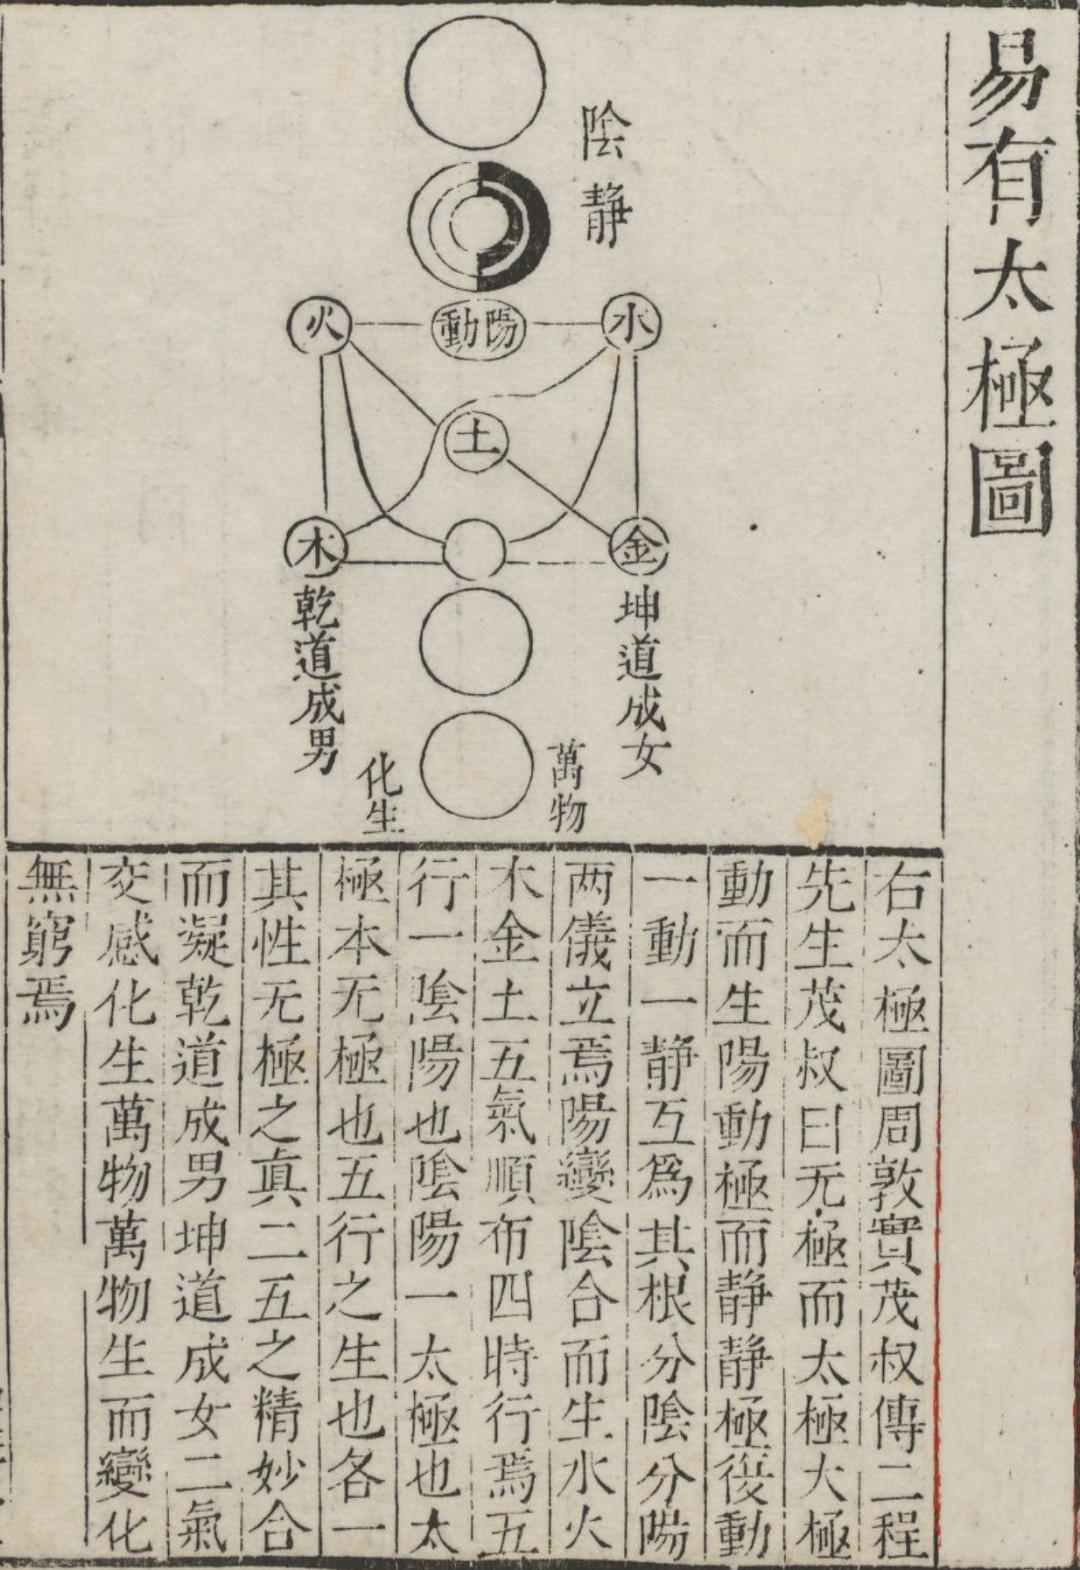 易有太極圖
陰静
水
陽動
火
土
金
木
坤道成女
乾道成男
萬物
化生
右太極圖周敦實茂叔傳二程
先生茂叔曰无極而太極大極
動而生陽動極而静静極復動
一動一静互爲其根分陰分陽
两儀立焉陽變陰合而生水火
木金土五氣順布四時行焉五
行一陰陽也陰陽一太極也太
極本无極也五行之生也各一
其性无極之真二五之精妙合
而凝乾道成男坤道成女二氣
交感化生萬物萬物生而變化
無窮焉